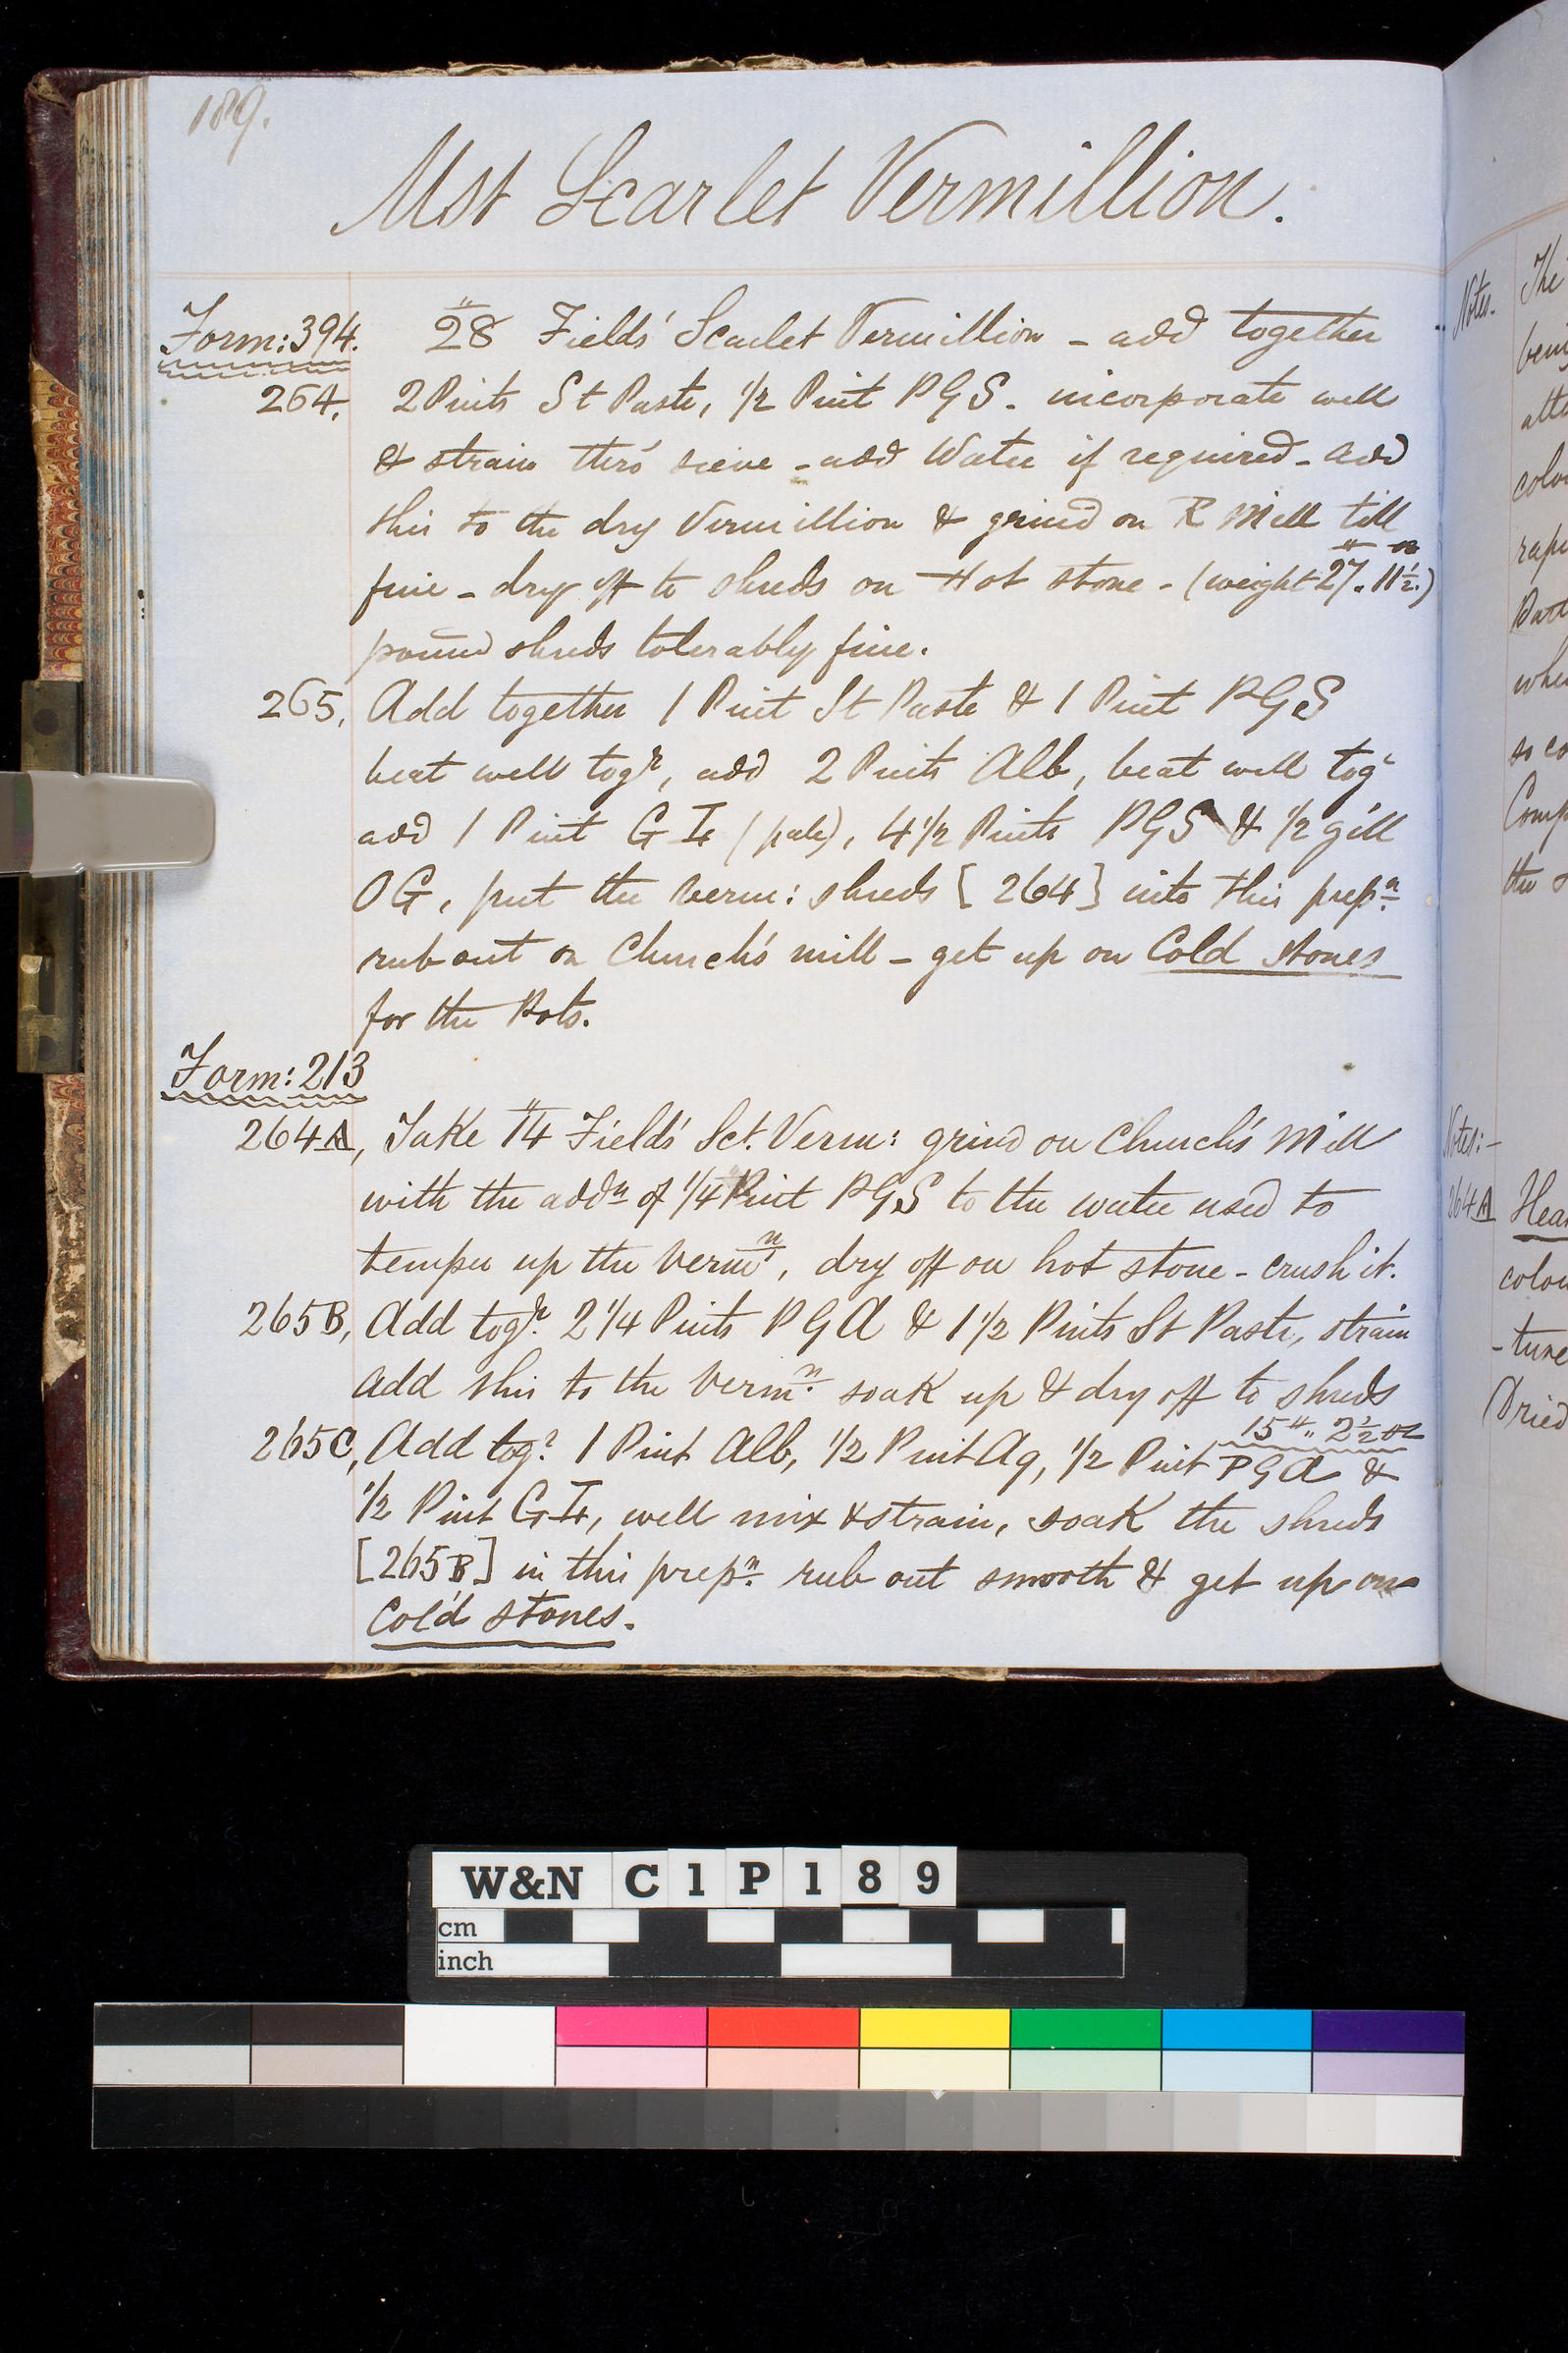 189.
Mst Scarlet Vermillion.
Form: 394. 28" Fields' Scarlet Vermillion - add together
264. 2 Pints St Paste, 1/2 Pint PGS. incorporate well
& strain thro' sieve - add Water if required - add
this to the dry Vermillion & grind on R Mill till
fine - dry off to shreds on Hot stone - (weight 27. 11½.)
pound shreds tolerably fine.
265, Add together 1 Pint St Paste & 1 Pint PGS
beat well togr, add 2 Pints Alb, beat well togr
add 1 Pint G (pale), 4 1/2 Pints PGS & 1/2 gill
OG, put the Verm: shreds [264] into this prepn.
rub out on Church's mill - get up on Cold Stones
for the Pots.
Form: 213
264A, Take 14" Fields' Sct. Verm: grind on Church's Mill
with the addn of 1/4 Pint PGS to the water used to
temper up the Vermn, dry off on hot stone - crush it.
265B, Add togr. 2 1/4 Pints PGA & 1 1/2 Pints St Paste, strain
add this to the Vermn. soak up & dry off to shreds
15 " 2½ oz
265C, Add togr. 1 Pint Alb, 1/2 Pint Ag, 1/2 Pint PGA &
1/2 Pint G, well mix & strain, soak the shreds
[265B] in this prepn. rub out smooth & get up on
Cold stones.
Notes.
The
colou
the
Notes:-
264A
Hea
colou
-ture
Dried
W&N C1P189
cm
inch